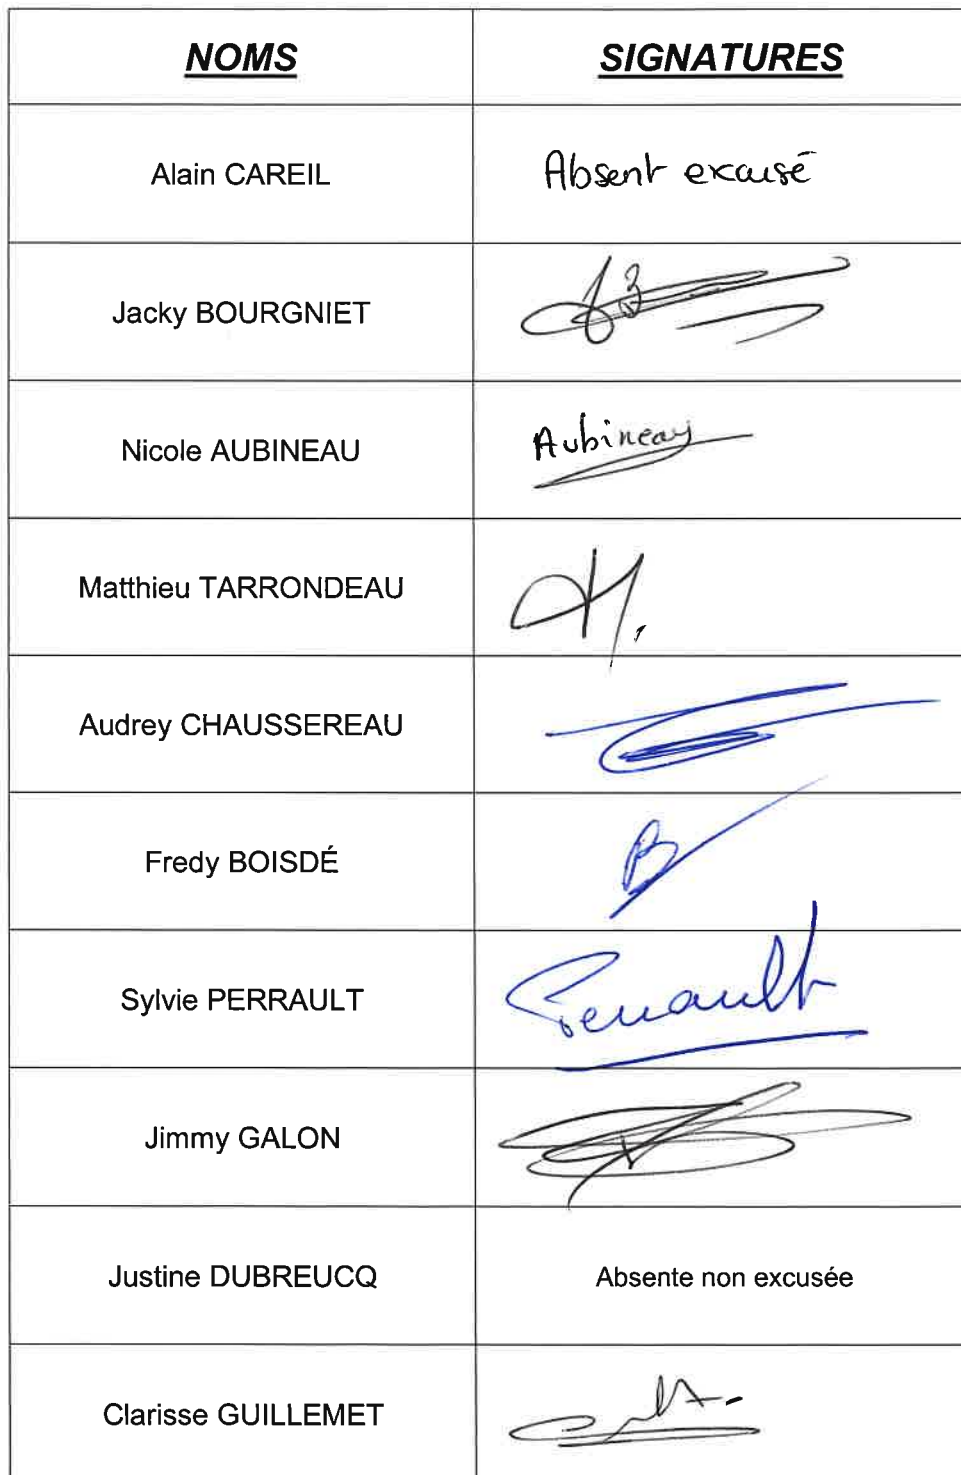 NOMS SIGNATURES
Alain CAREIL Absent excusé
Jacky BOURGNIET
Nicole AUBINEAU Aubineau
Matthieu TARRONDEAU
Audrey CHAUSSEREAU
Fredy BOISDÉ B
Sylvie PERRAULT Perrault
Jimmy GALON
Justine DUBREUCQ Absente non excusée
Clarisse GUILLEMET